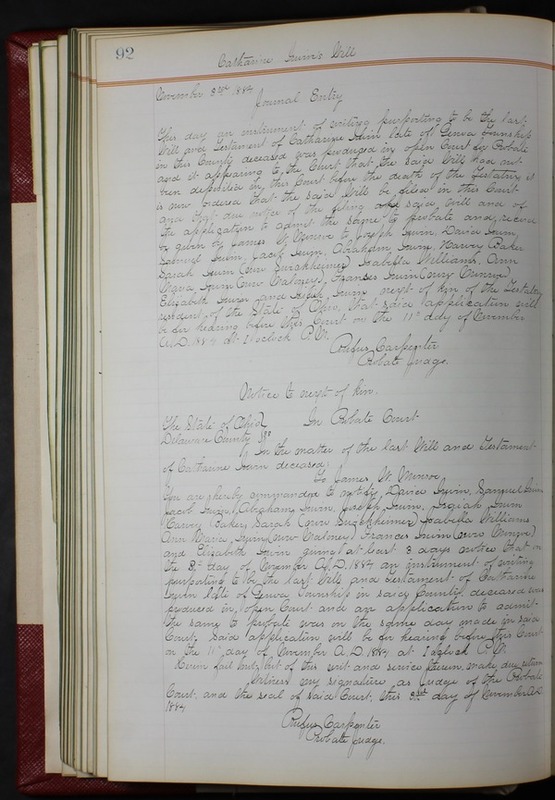 92
Catharine Irwin's Will
November 3rd 1884
Journal Entry
This day an instrument of writing purporting to be the last
Will and Testament of Catharine Irwin late of Genoa Township
in this County deceased was produced in open Court for Probate
and it appearing to the Court that the said Will had not
been deposited in this Court before the death of the Testatrix it
is now ordered that the said Will be filed in this Court
and that due notice of the filing of said Will and of
the application to admit the same to probate and
be given by James W. Munroe to Joseph Irwin, David Irwin
Samuel Irwin, Jacob Irwin, Abraham Irwin, Harvey Baker
Sarah Irwin (now Burkheimer) Isabella Williams, Ann
Maria Irwin (now Maloney), Frances Irwin (now Munroe)
Elizabeth Irwin and Irwin next of kin of the Testatrix
resident of the State of Ohio, that said application will
be for hearing before this Court on the 11th day of November
A.D. 1884 at 1 o'clock P.M.
Rufus Carpenter
Probate Judge.
Notice to next of kin.
The State of Ohio } In Probate Court
Delaware County } SS
In the matter of the last Will and Testament
of Catharine Irwin deceased:
To James W. Munroe
You are hereby commanded to notify David Irwin, Samuel Irwin
Jacob Irwin, Abraham Irwin, Joseph Irwin, Josiah Irwin
Harvey Baker, Sarah (now Burkheimer) Isabella Williams
Ann Maria Irwin (now Maloney) Frances Irwin (now Munroe)
and Elizabeth Irwin giving at least 3 days notice that on
the 3rd day of November A.D. 1884 an instrument of writing
purporting to be the last Will and testament of Catharine
Irwin late of Genoa Township in said County deceased was
produced in open Court and an application to admit
the same to probate was on the same day made in said
Court. Said application will be for hearing before this Court
on the 11th day of November A.D. 1884 at 1 o'clock P.M.
fail not, but of this writ and service make due return
Witness my signature as Judge of the Probate
Court, and the seal of said Court, this 3rd day of November A.D.
1884
Rufus Carpenter
Probate Judge.